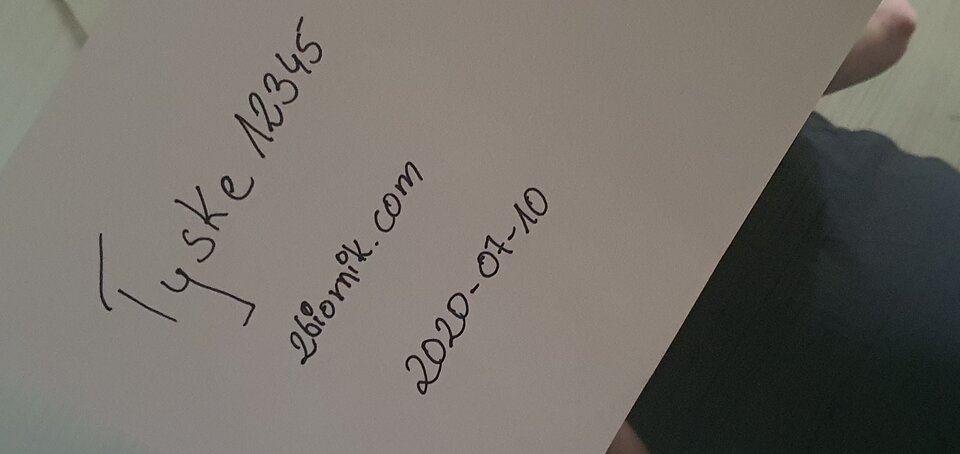 Tyske 12345
zbiornik.com
2020-07-10